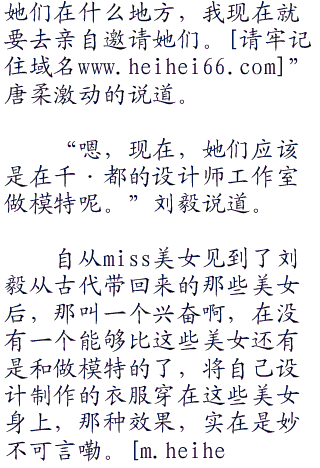 她们在什么地方，我现在就
要去亲自邀请她们。[请牢记
住域名www.heihei66.com]”
唐柔激动的说道。
“嗯，现在，她们应该
是在千·都的设计师工作室
做模特呢。”刘毅说道。
自从miss美女见到了刘
毅从古代带回来的那些美女
后，那叫一个兴奋啊，在没
有一个能够比这些美女还有
是和做模特的了，将自己设
计制作的衣服穿在这些美女
身上，那种效果，实在是妙
不可言嘞。[m.heihe